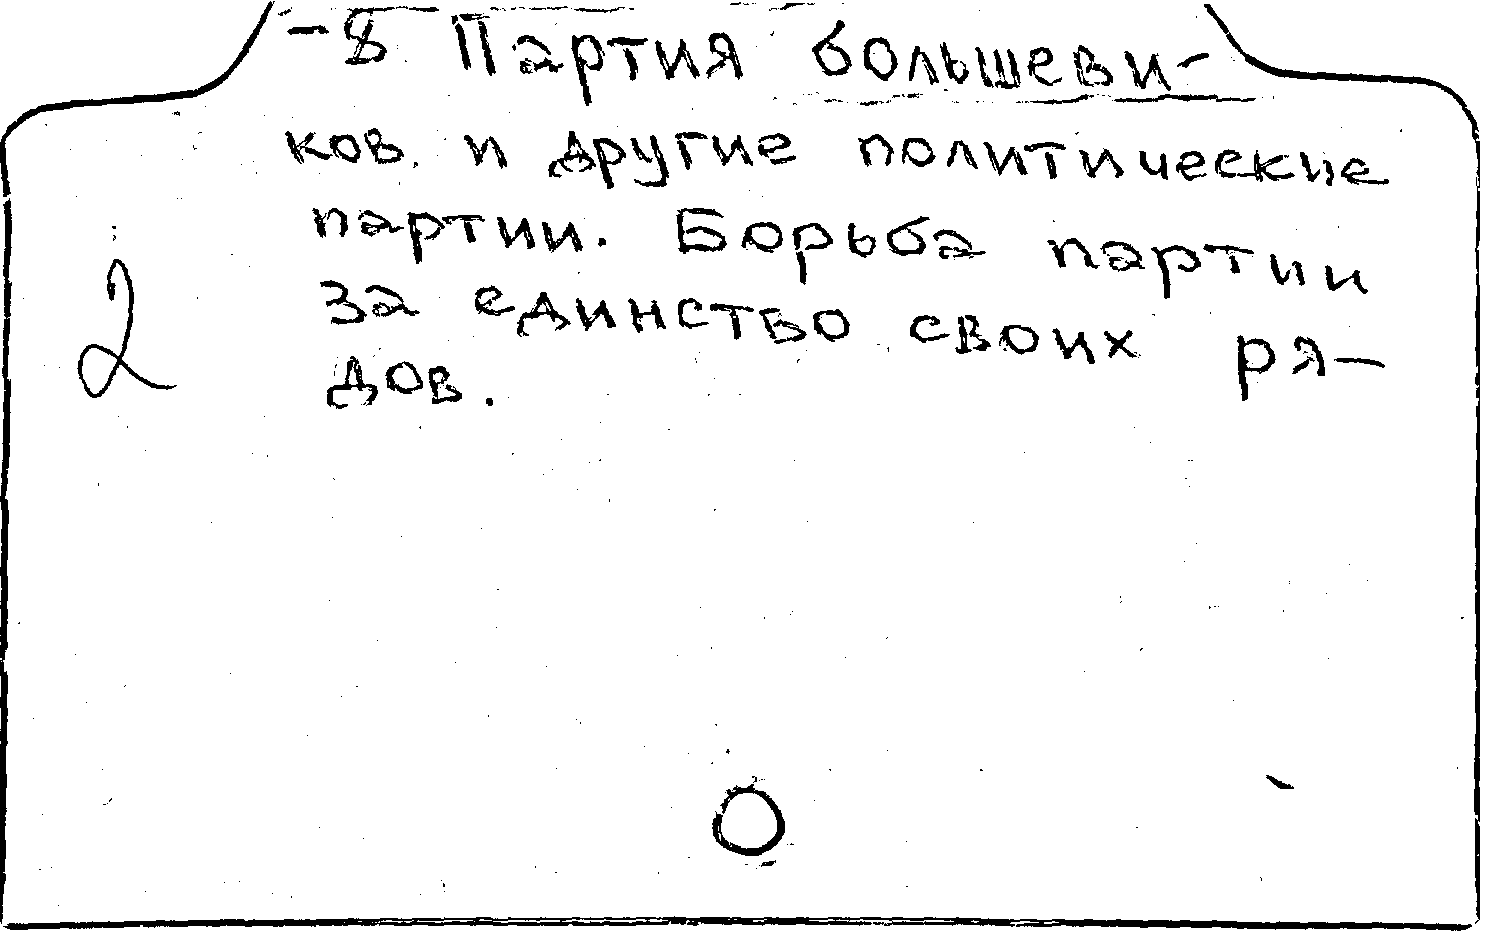 -8 Партия большеви-
ков и другие политические
партии. Борьба партии
2
за единство своих ря-
дов.